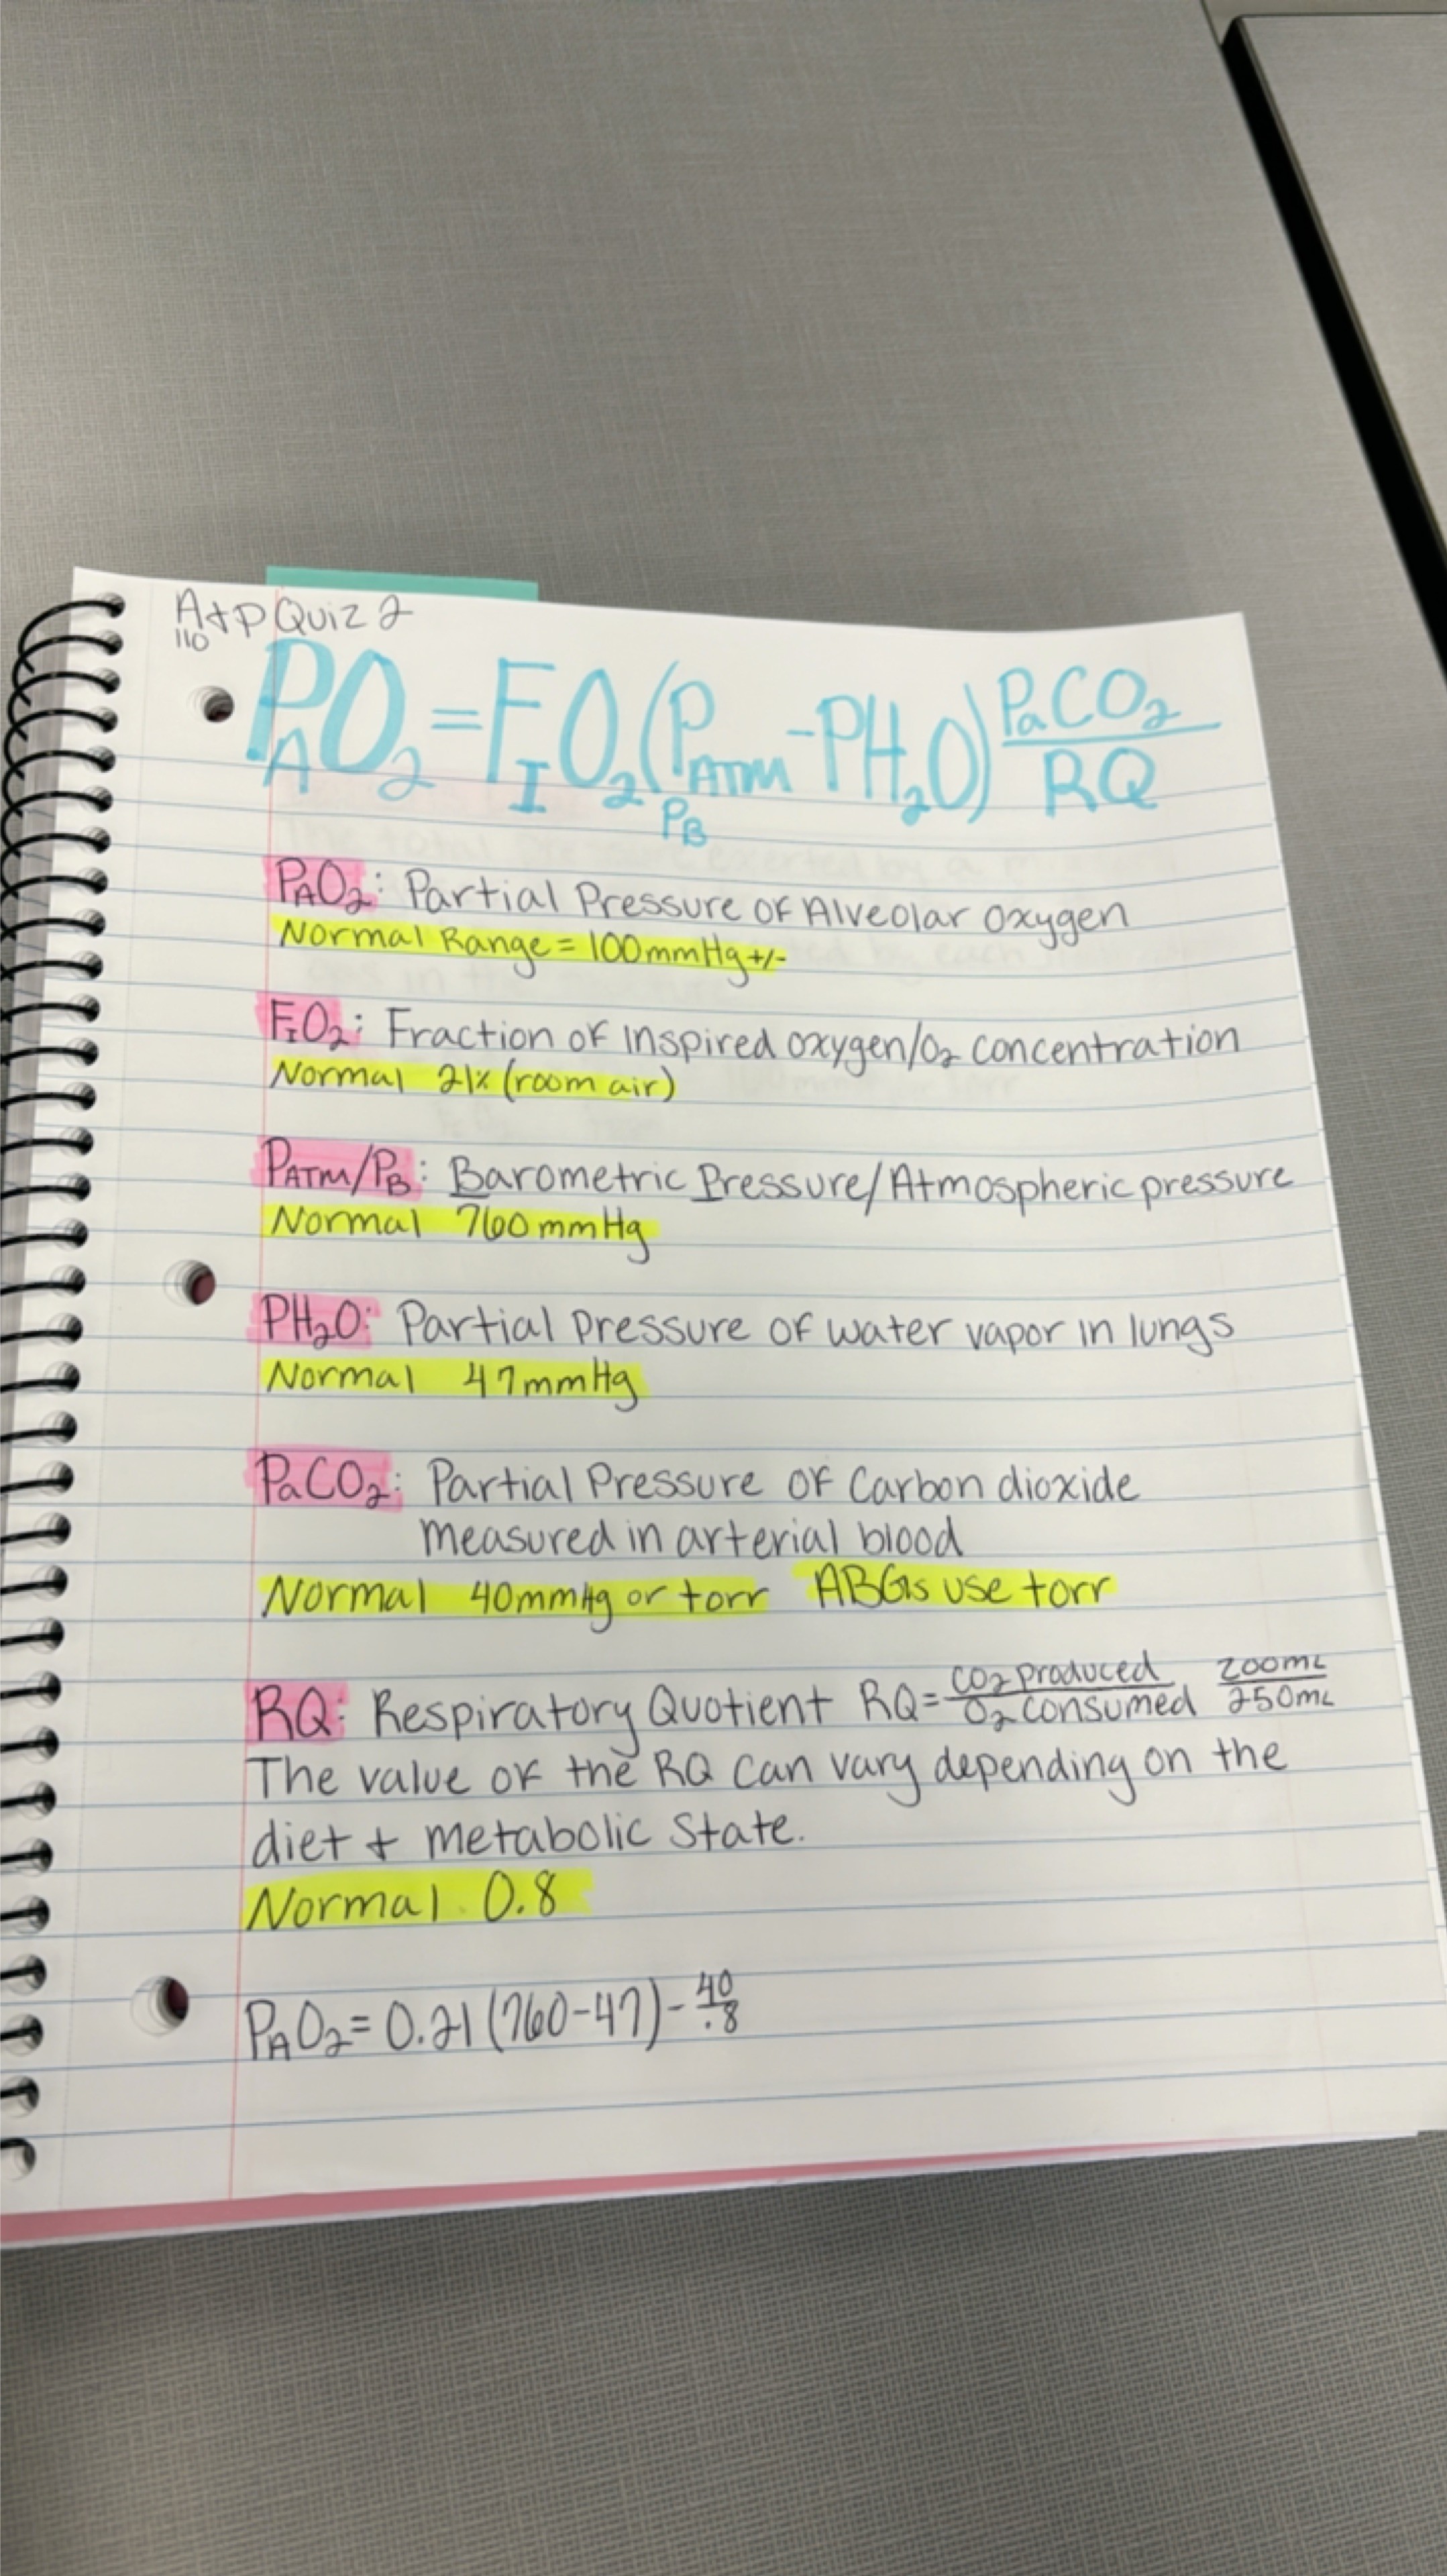 A+P Quiz 2
110
PAO₂ = FIO₂ (PATM - PH₂O) PaCO₂/RQ
PB
PAO₂: Partial Pressure of Alveolar Oxygen
Normal Range = 100mmHg +/-
FIO₂: Fraction of Inspired Oxygen/O₂ concentration
Normal 21% (room air)
PATM/PB: Barometric Pressure/Atmospheric pressure
Normal 760 mmHg
PH₂O: Partial Pressure of water vapor in lungs
Normal 47mmHg
PaCO₂: Partial Pressure of Carbon dioxide
measured in arterial blood
Normal 40mmHg or torr ABGs use torr
RQ: Respiratory Quotient RQ = CO₂ produced/O₂ consumed 200mL/250mL
The value of the RQ can vary depending on the
diet + metabolic state.
Normal 0.8
PAO₂ = 0.21 (760-47) - 40/.8